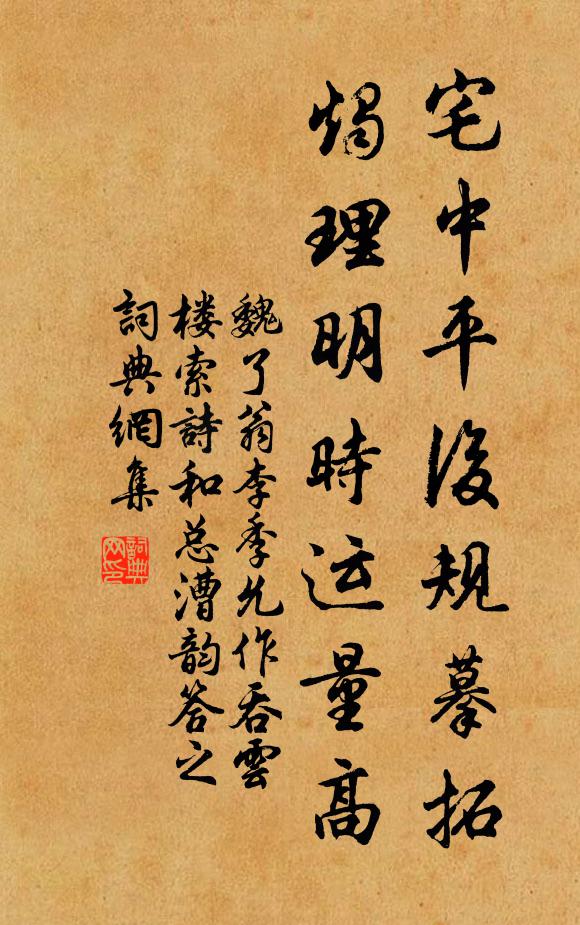 宅中平後規摹拓
燭理明時运量高
魏了翁李季允作吞雲
楼索詩和总漕韵答之
詞典網集
詞典网印